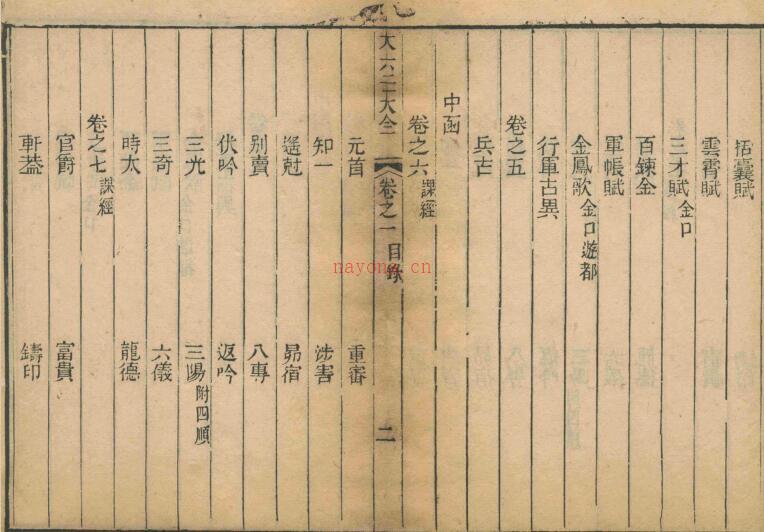 括囊賦
雲霄賦
三才賦 金口
百鍊金
軍帳賦
金鳳歌 金口 遊都
行軍古異
卷之五
兵占
中函
卷之六 課經
大六壬大全 卷之一 目錄 二
元首 重審
知一 涉害
遙尅 昴宿
別責 八專
伏吟 返吟
三光 三陽 附四順
三奇 六儀
時太 龍德
卷之七 課經
官爵 富貴
軒葢 鑄印
nayona.cn